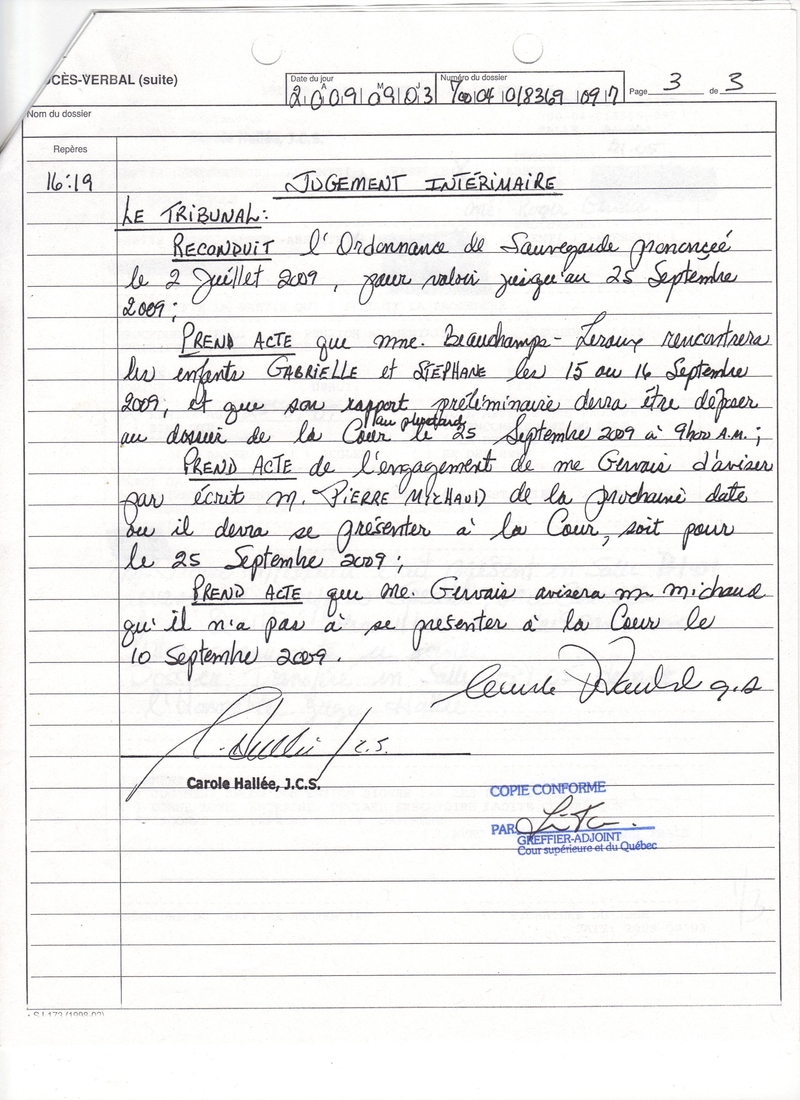 CÈS-VERBAL (suite)
Date du jour
A M J
2009 09 03
Numéro du dossier
Page 3 de 3
Nom du dossier
Repères
16:19
JUGEMENT INTÉRIMAIRE
LE TRIBUNAL:
RECONDUIT l'Ordonnance de Sauvegarde prononcée
le 2 Juillet 2009, pour valoir jusqu'au 25 Septembre
2009;
PREND ACTE que mme. Beauchamps-Leroux rencontrera
les enfants GABRIELLE et STÉPHANE les 15 au 16 Septembre
2009, et que son rapport préliminaire devra être déposer
au plus tard
au dossier de la Cour le 25 Septembre 2009 à 9h00 A.M.;
PREND ACTE de l'engagement de me Gervais d'aviser
par écrit M. PIERRE MICHAUD de la prochaine date
ou il devra se présenter à la Cour, soit pour
le 25 Septembre 2009;
PREND ACTE que me. Gervais avisera m. michaud
qu'il n'a pas à se présenter à la Cour le
10 Septembre 2009.
J.C.S.
Carole Hallée, J.C.S.
COPIE CONFORME
PAR
GREFFIER-ADJOINT
Cour supérieure et du Québec